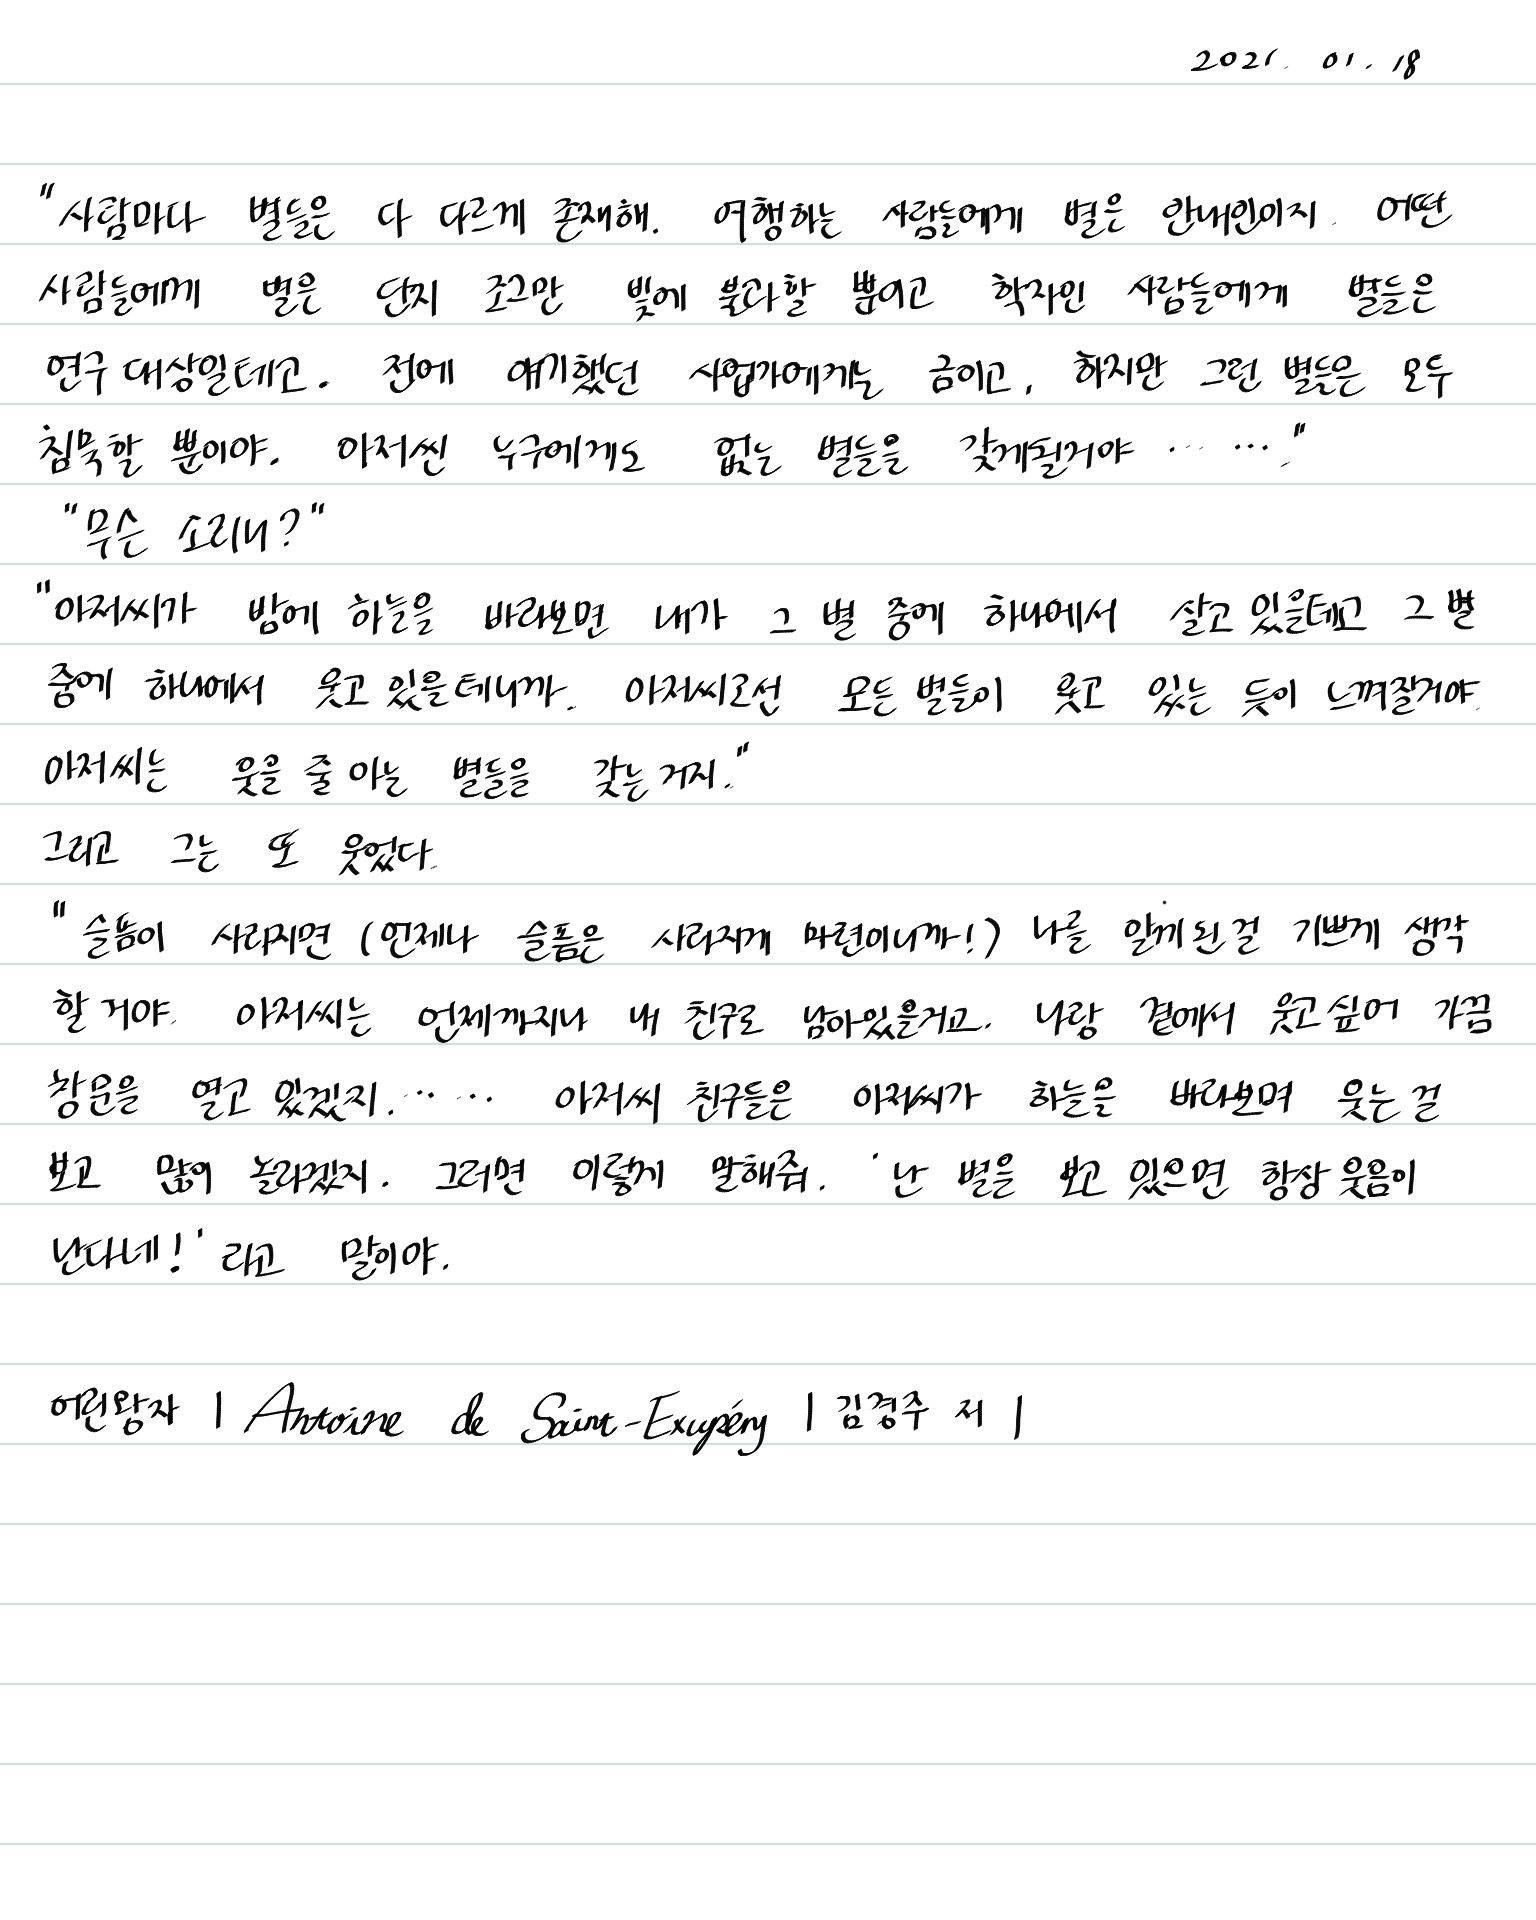 2021. 01. 18
"사람마다 별들은 다 다르게 존재해. 여행하는 사람들에게 별은 안내인이지. 어떤
사람들에게 별은 단지 조그만 빛에 불과할 뿐이고 학자인 사람들에게 별들은
연구 대상일테고. 전에 얘기했던 사업가에게는 금이고, 하지만 그런 별들은 모두
침묵할 뿐이야. 아저씬 누구에게도 없는 별들을 갖게될거야 ‥ …."
"무슨 소리니?"
"아저씨가 밤에 하늘을 바라보면 내가 그 별 중에 하나에서 살고 있을테고 그 별
중에 하나에서 웃고 있을테니까. 아저씨로선 모든 별들이 웃고 있는 듯이 느껴질거야.
아저씨는 웃을 줄 아는 별들을 갖는 거지."
그리고 그는 또 웃었다.
"슬픔이 사라지면 (언제나 슬픔은 사라지게 마련이니까!) 나를 알게 된 걸 기쁘게 생각
할 거야. 아저씨는 언제까지나 내 친구로 남아있을거고. 나랑 곁에서 웃고 싶어 가끔
창문을 열고 있겠지.‥ ‥ 아저씨 친구들은 아저씨가 하늘을 바라보며 웃는 걸
보고 많이 놀라겠지. 그러면 이렇게 말해줘. '난 별을 보고 있으면 항상 웃음이
난다네!' 라고 말이야.
어린왕자 | Antoine de Saint-Exupéry | 김경주 저 |